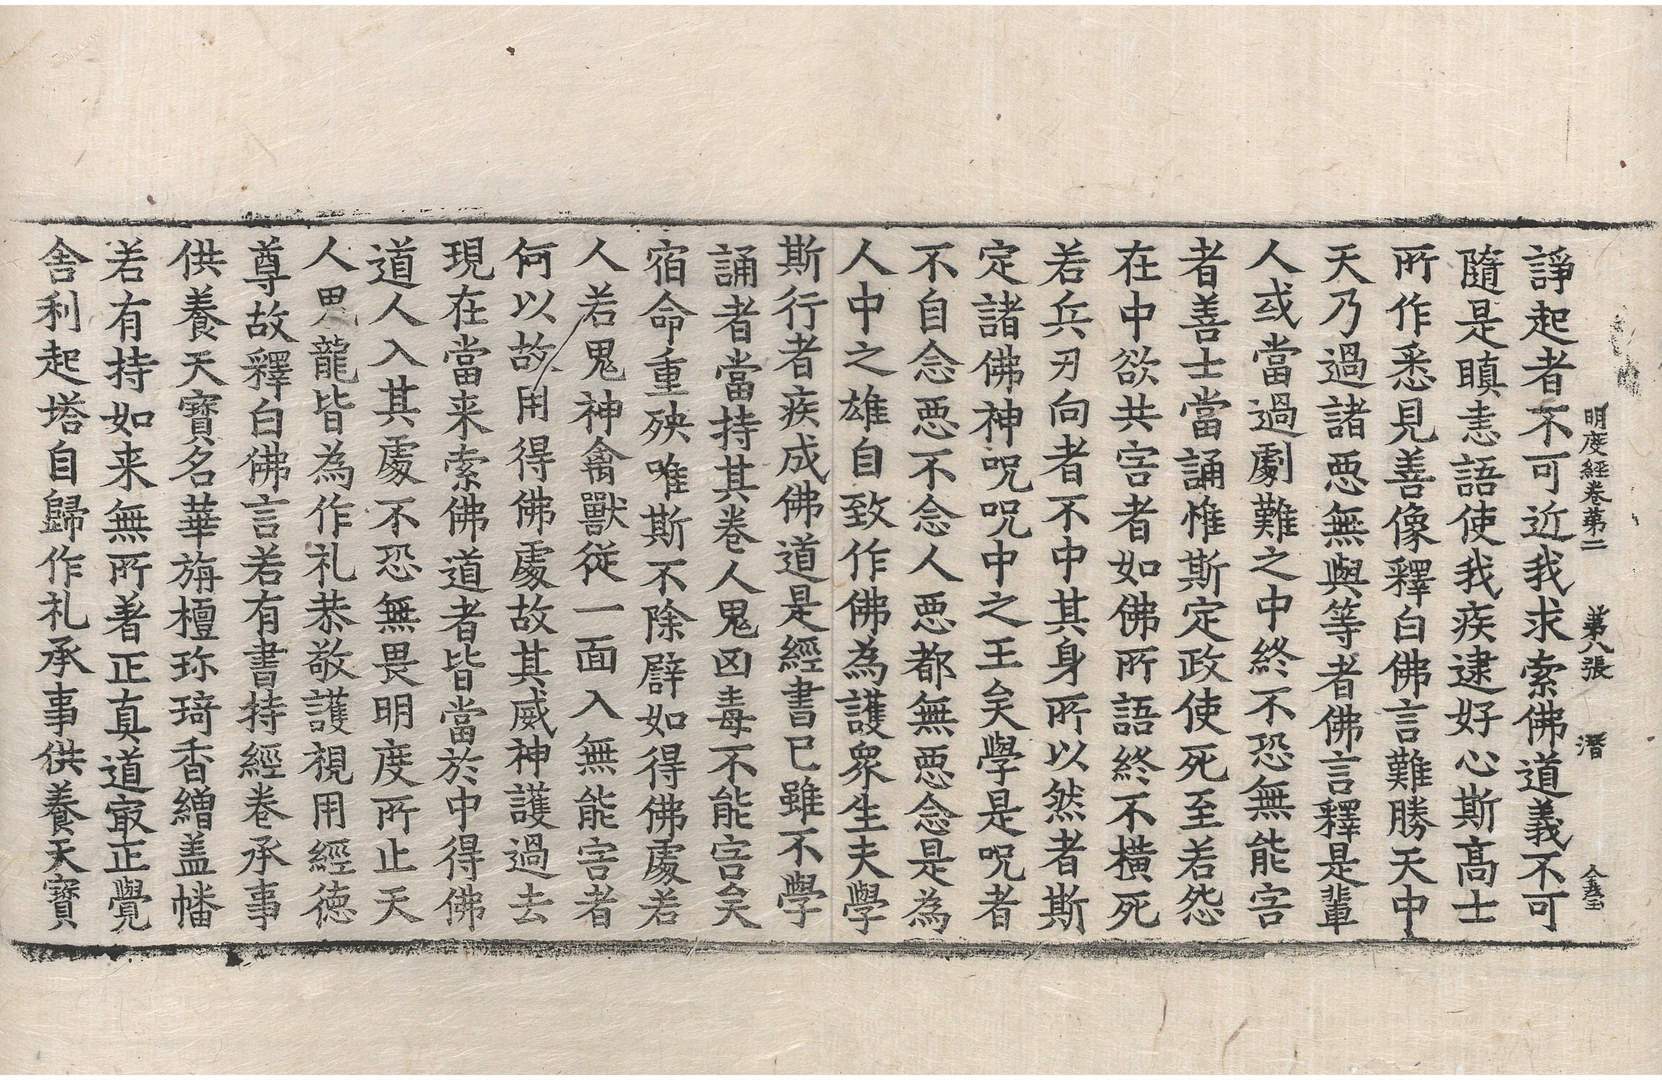 明度經卷第二　第八張　潛
諍起者不可近我求索佛道義不可
隨是瞋恚語使我疾逮好心斯高士
所作悉見善像釋白佛言難勝天中
天乃過諸惡無與等者佛言釋是輩
人或當過劇難之中終不恐無能害
者善士當誦惟斯定政使死至若怨
在中欲共害者如佛所語終不橫死
若兵刃向者不中其身所以然者斯
定諸佛神呪呪中之王矣學是呪者
不自念惡不念人惡都無惡念是為
人中之雄自致作佛為護衆生夫學
斯行者疾成佛道是經書已雖不學
誦者當持其卷人鬼凶毒不能害矣
宿命重殃唯斯不除辟如得佛處若
人若鬼神禽獸從一面入無能害者
何以故用得佛處故其威神護過去
現在當来索佛道者皆當於中得佛
道人入其處不恐無畏明度所止天
人鬼龍皆為作礼恭敬護視用經德
尊故釋白佛言若有書持經卷承事
供養天寶名華旃檀珎琦香繒盖幡
若有持如来無所著正真道㝡正覺
舍利起塔自歸作礼承事供養天寶